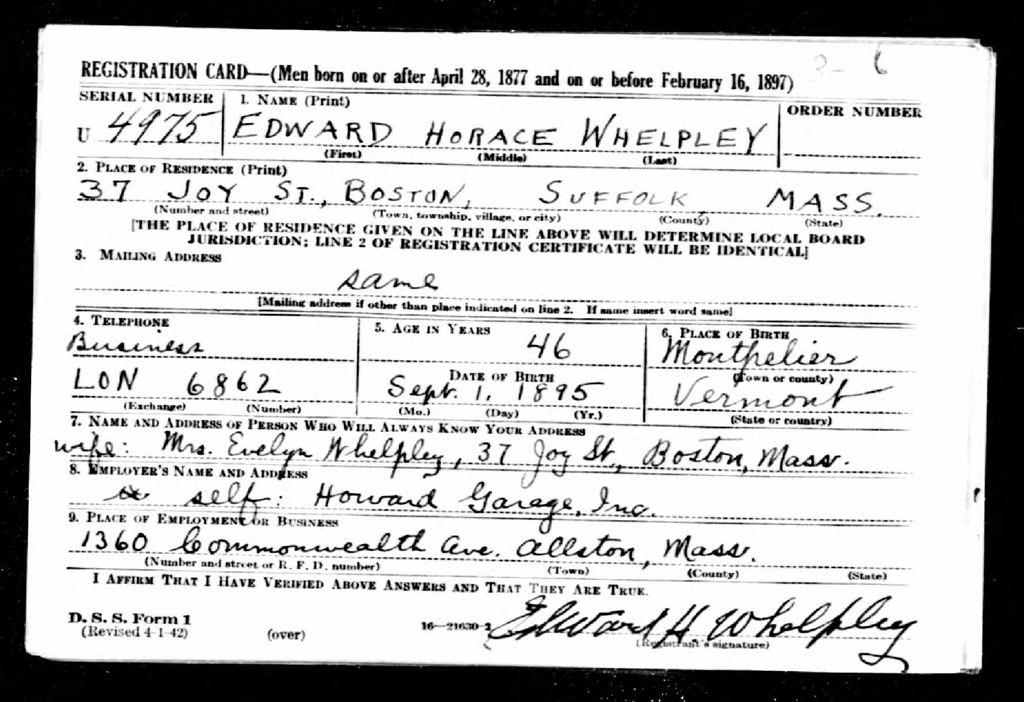 3- 6
REGISTRATION CARD—(Men born on or after April 28, 1877 and on or before February 16, 1897)
SERIAL NUMBER 1. NAME (Print) ORDER NUMBER
U 4975 EDWARD HORACE WHELPLEY
(First) (Middle) (Last)
2. PLACE OF RESIDENCE (Print)
37 JOY ST., BOSTON, SUFFOLK MASS.
(Number and street) (Town, township, village, or city) (County) (State)
[THE PLACE OF RESIDENCE GIVEN ON THE LINE ABOVE WILL DETERMINE LOCAL BOARD
JURISDICTION; LINE 2 OF REGISTRATION CERTIFICATE WILL BE IDENTICAL]
3. MAILING ADDRESS
same
[Mailing address if other than place indicated on line 2. If same insert word same]
4. TELEPHONE 5. AGE IN YEARS 6. PLACE OF BIRTH
Business 46 Montpelier
DATE OF BIRTH (Town or county)
LON 6862 Sept. 1. 1895 Vermont
(Exchange) (Number) (Mo.) (Day) (Yr.) (State or country)
7. NAME AND ADDRESS OF PERSON WHO WILL ALWAYS KNOW YOUR ADDRESS
wife: Mrs. Evelyn Whelpley, 37 Joy St., Boston, Mass.
8. EMPLOYER'S NAME AND ADDRESS
self: Howard Garage, Inc.
9. PLACE OF EMPLOYMENT OR BUSINESS
1360 Commonwealth Ave. Allston, Mass.
(Number and street or R. F. D. number) (Town) (County) (State)
I AFFIRM THAT I HAVE VERIFIED ABOVE ANSWERS AND THAT THEY ARE TRUE.
D. S. S. Form 1
(Revised 4-1-42) (over) 16—21630-2 Edward H. Whelpley
(Registrant's signature)